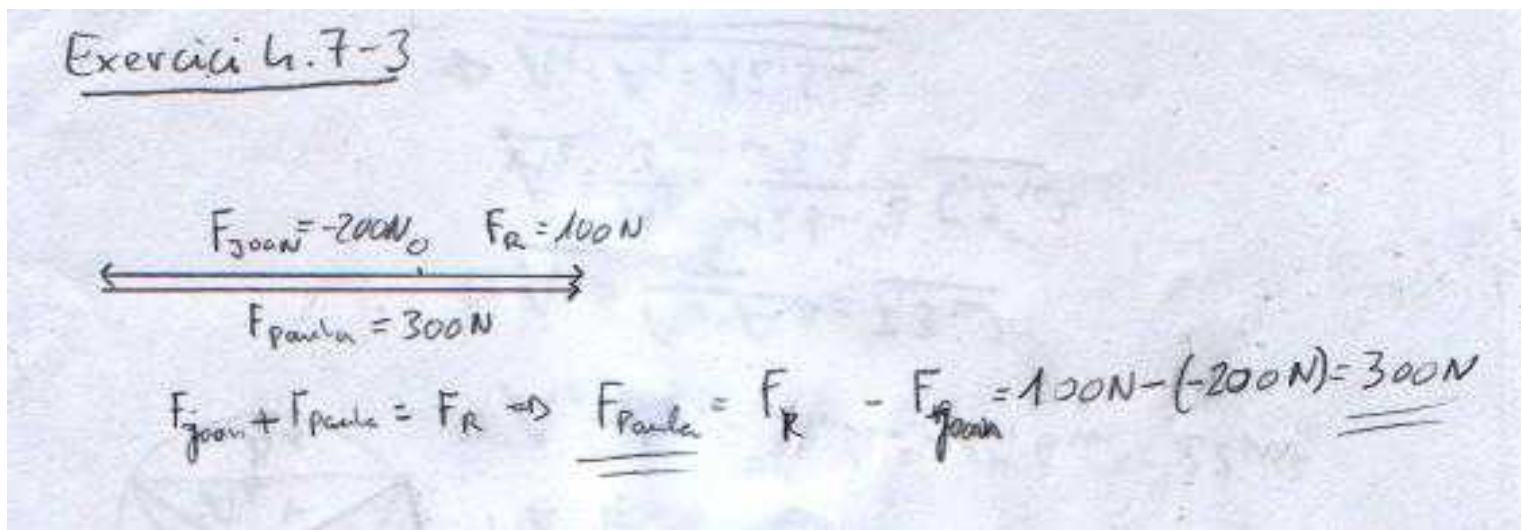 Exercici 4.7-3
F_Joan = -200N 0 F_R = 100N
F_Paula = 300N
F_Joan + F_Paula = F_R => F_Paula = F_R - F_Joan = 100N-(-200N) = 300N